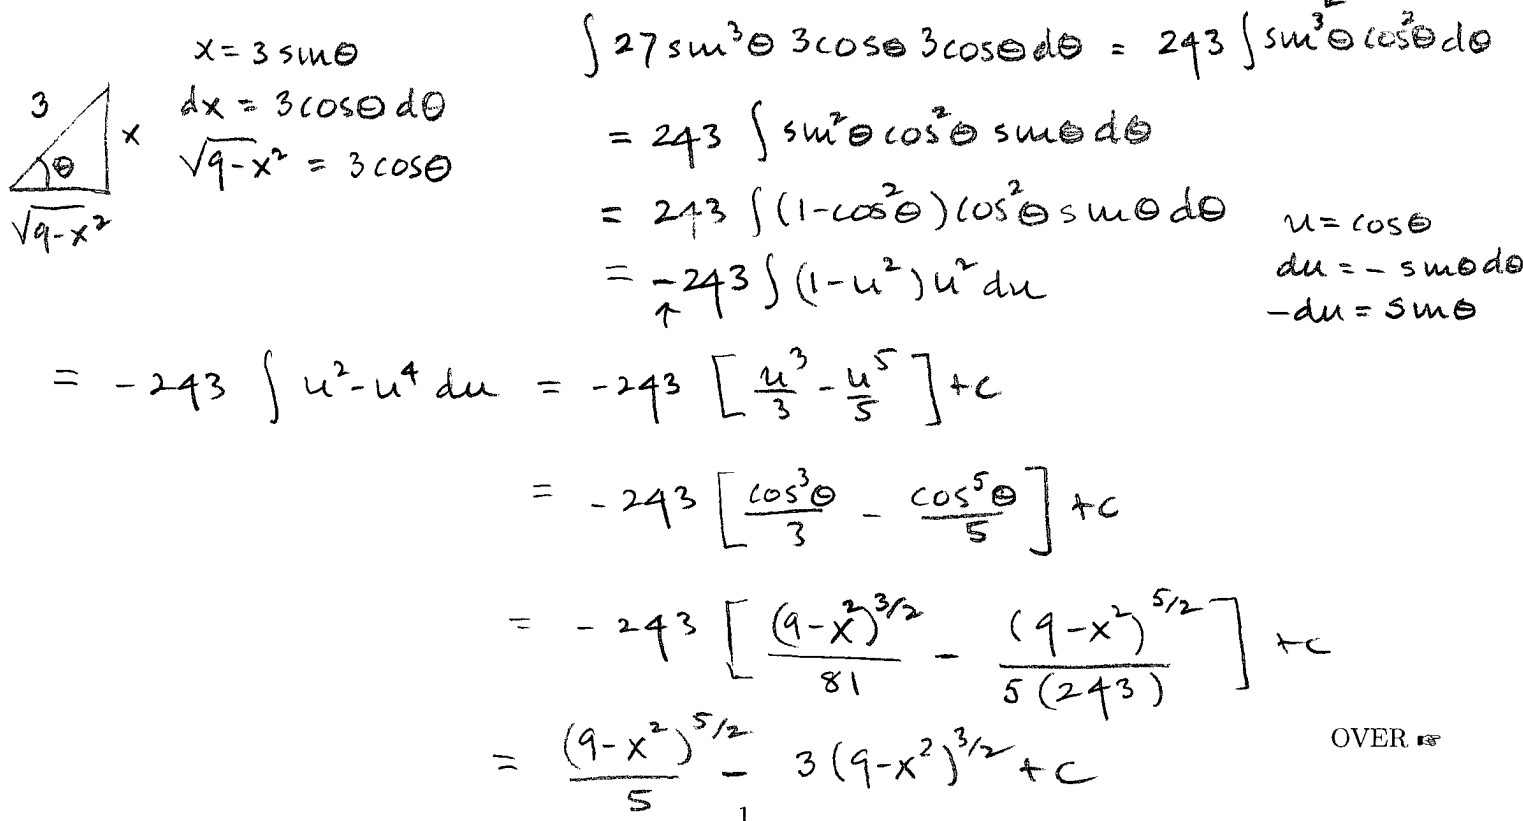 x = 3 sinθ
dx = 3cosθ dθ
√9-x² = 3cosθ
3
x
θ
√9-x²
∫ 27 sin³θ 3cosθ 3cosθ dθ = 243 ∫ sin³θ cos²θ dθ
= 243 ∫ sin²θ cos²θ sinθ dθ
= 243 ∫ (1-cos²θ) cos²θ sinθ dθ
u = cosθ
= -243 ∫ (1-u²) u² du
du = - sinθ dθ
↑
-du = sinθ
= -243 ∫ u²-u⁴ du = -243 [ u³/3 - u⁵/5 ] + c
= -243 [ cos³θ/3 - cos⁵θ/5 ] + c
= -243 [ (9-x²)^3/2 / 81 - (9-x²)^5/2 / 5(243) ] + c
= (9-x²)^5/2 / 5 - 3(9-x²)^3/2 + c
OVER ☞
1